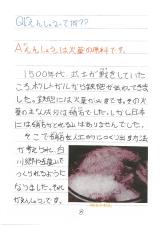 Q「えんしょう」て何??
A「えんしょう」は火薬の原料です。
1500年代、武士が戦をしていた
ころ、ポルトガルから鉄砲が伝わってきま
した。鉄砲には火薬が必要です。その火
薬の主な成分は硝石でした。しかし日本
には硝石がとれる山はありませんでした。
そこで硝石を人工的につくり出す方法
が考えられ、白
川郷や五箇山で
つくられるように
なりました。それ
がえんしょうです。
8